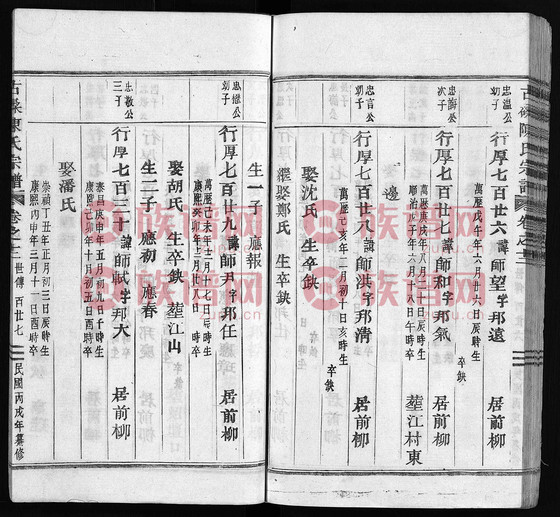 古磉陳氏宗譜 卷之十二
忠溫公
初子
行厚七百廿六 諱師望 字邦遠 居前柳
萬歷戊午年六月廿六日辰時生
忠清公
次子
行厚七百廿七 諱師和 字邦氣 居前柳
萬歷庚戌年八月
順治戊子年六月十八日午時卒
塟江村東
邊
忠言公
初子
行厚七百廿八 諱師洪 字邦清 居前柳
萬歷辛亥年二月初十日亥時生
卒缺
娶沈氏 生卒缺
繼娶鄭氏 生卒缺
生一子 應報
忠樾公
初子
行厚七百廿九 諱師尹 字邦任 居前柳
萬歷己未年十二月十七日辰時生
康熙癸卯年三月初八日時卒
娶胡氏 生卒缺 塟江山
生二子 應初 應春
忠敬公
三子
行厚七百三十 諱師軾 字邦大 居前柳
泰昌庚申年五月初五日酉時生
康熙己卯年十月初五日時卒
娶潘氏
崇禎丁丑年正月初三日辰時生
康熙丙申年三月十一日酉時卒
古磉陳氏宗譜 卷之十二 世傳 百廿七 民國丙戌年纂修
族譜网